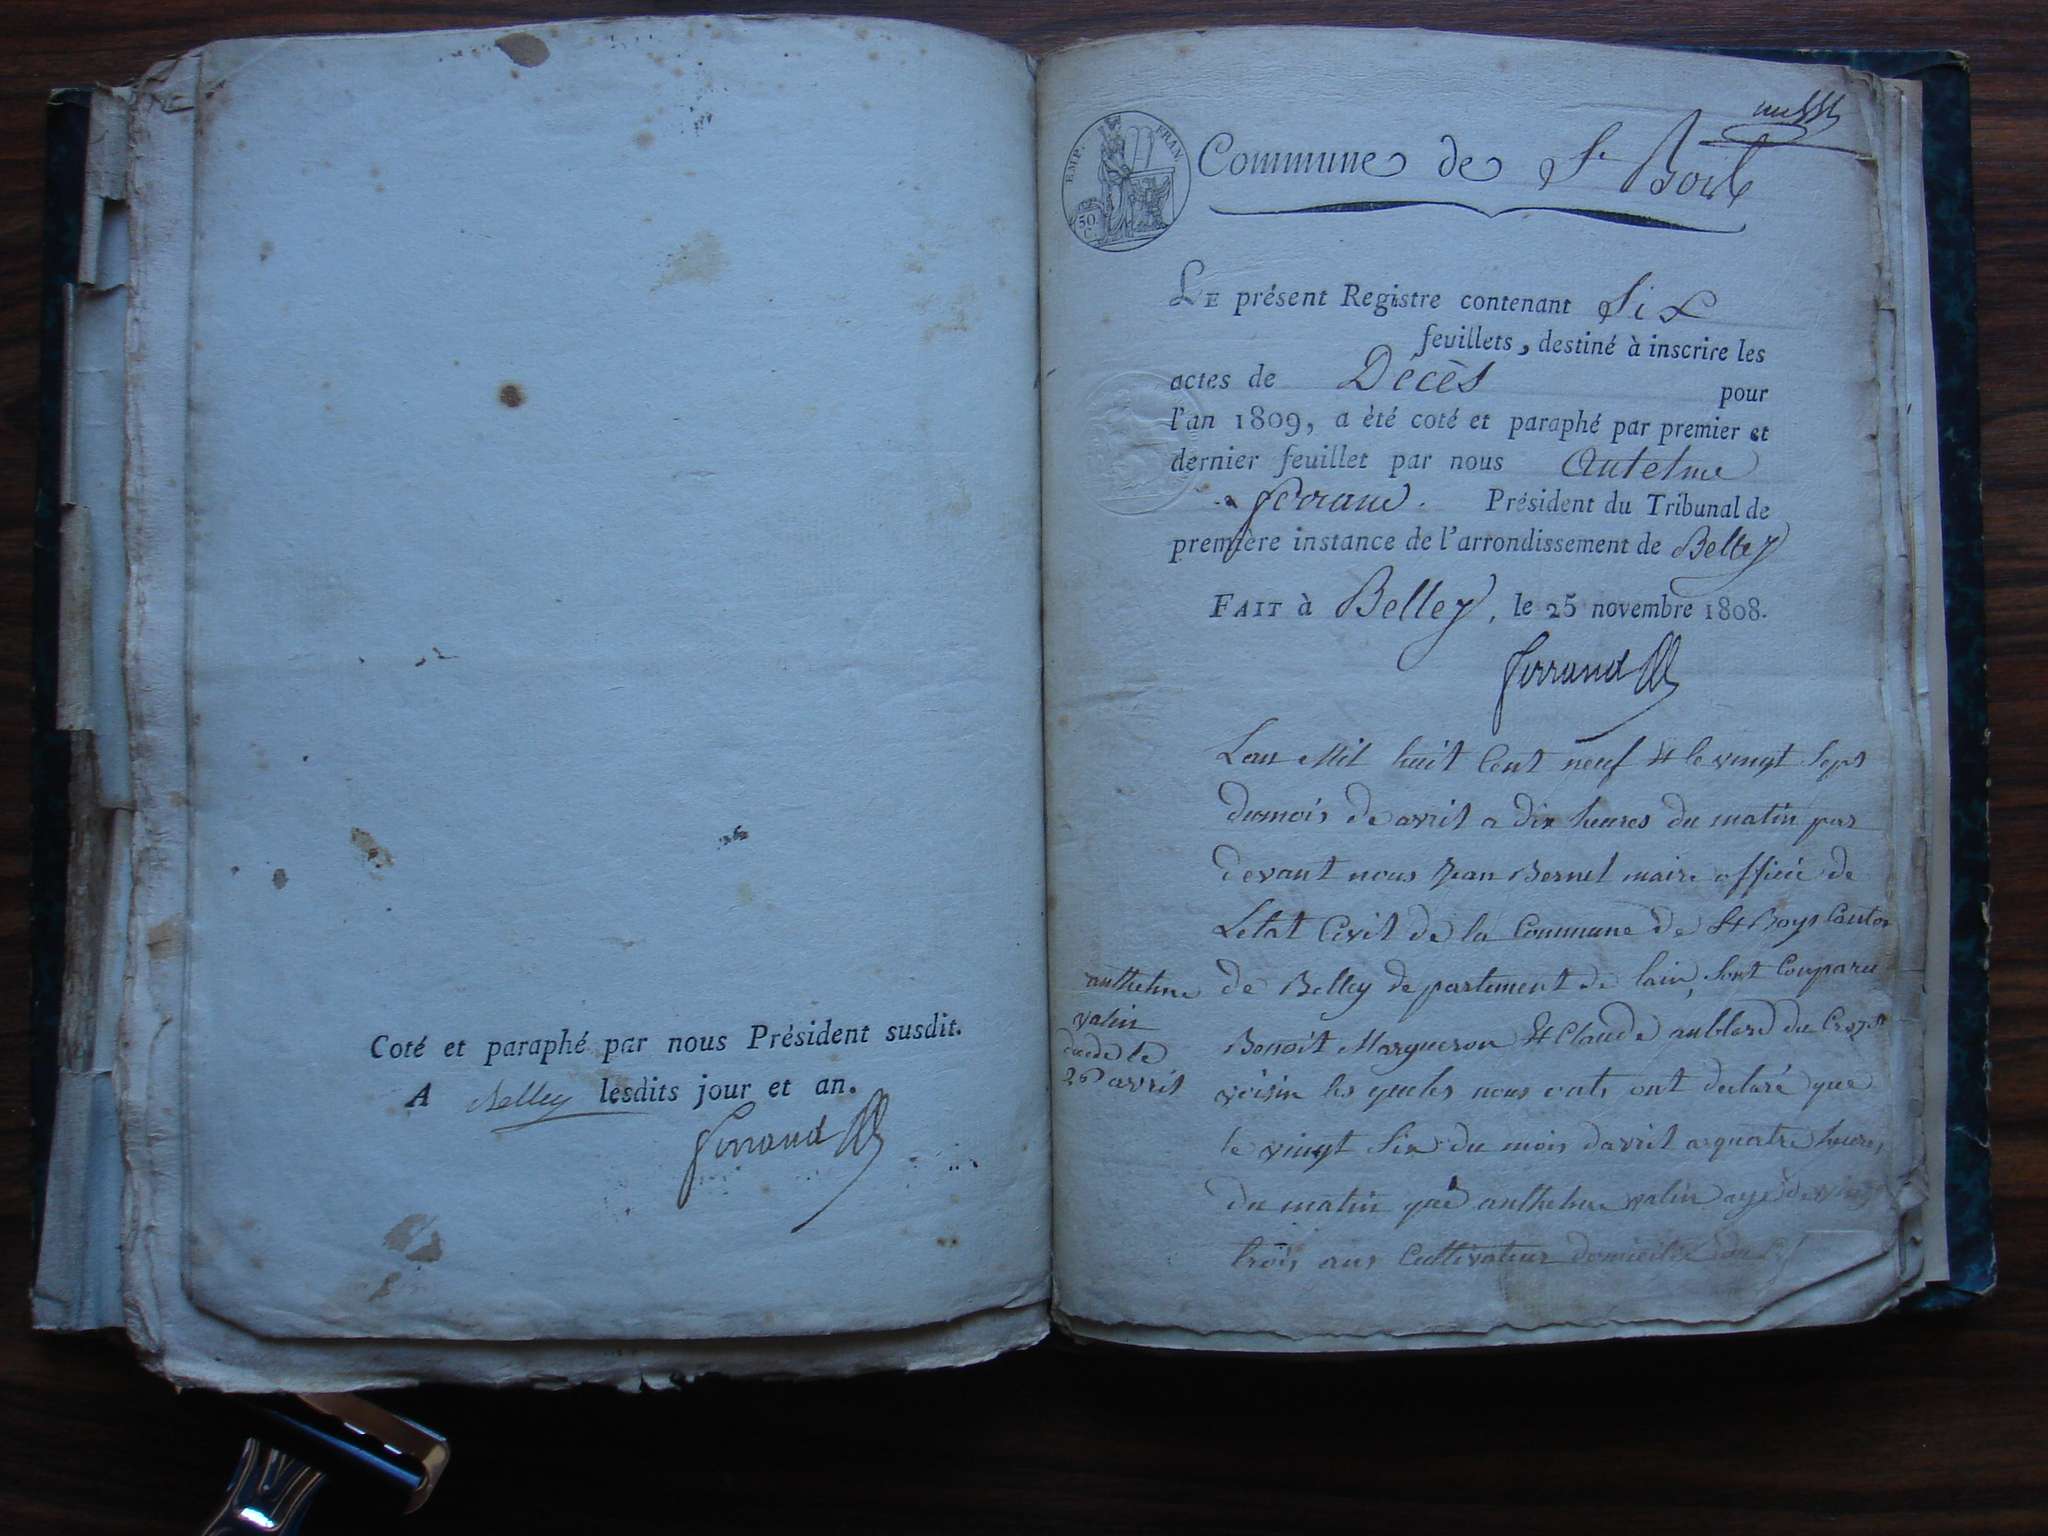 Coté et paraphé par nous Président susdit.
A Belley lesdits jour et an.
Ferrand
EMP. FRAN.
50 C.
Commune de St Bois
LE présent Registre contenant Six
feuillets, destiné à inscrire les
actes de Décès pour
l'an 1809, a èté coté et paraphé par premier et
dernier feuillet par nous Antelme
Ferrand. Président du Tribunal de
première instance de l'arrondissement de Belley
FAIT à Belley, le 25 novembre 1808.
Ferrand
Lan Mil huit Cent neuf & le vingt Sept
dumois de avril a dix heures du matin par
devant nous Jean Bernel maire officié de
Letat Civil de la Commune de St Boys Canton
de Belley departement de lain, Sont Comparu
Benoit Margueron & Claude aublerd du Crozet
voisin les quels nous ont declaré que
le vingt Six du mois davril a quatre heures
du matin que anthelme valin agé de vingt
trois ans Cultivateur domicilié
anthelme
valin
decede le
26 avril